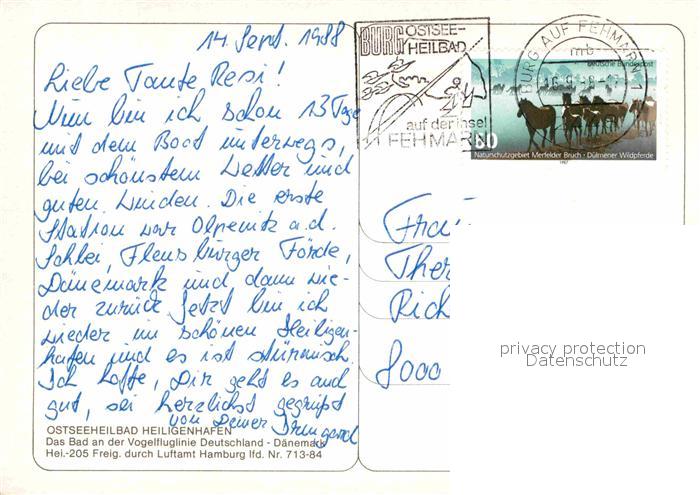 14. Sept. 1988
Liebe Tante Resi!
Nun bin ich schon 13 Tage
mit dem Boot unterwegs,
bei schönstem Wetter und
guten Winden. Die erste
Station war Olpenitz a.d.
Schlei, Flensburger Förde,
Dänemark und dann wie-
der zurück. Jetzt bin ich
wieder im schönen Heiligen-
hafen und es ist stürmisch.
Ich hoffe, Dir geht es auch
gut, sei herzlichst gegrüßt
von Deiner Irmgard
OSTSEEHEILBAD HEILIGENHAFEN
Das Bad an der Vogelfluglinie Deutschland - Dänemark
Hei.-205 Freig. durch Luftamt Hamburg lfd. Nr. 713-84
BURG OSTSEE-
HEILBAD
auf der Insel
FEHMARN
BURG AUF FEHMARN
mb
Deutsche Bundespost
60
Naturschutzgebiet Merfelder Bruch · Dülmener Wildpferde
1987
Frau
Ther
Rich
8000
privacy protection
Datenschutz